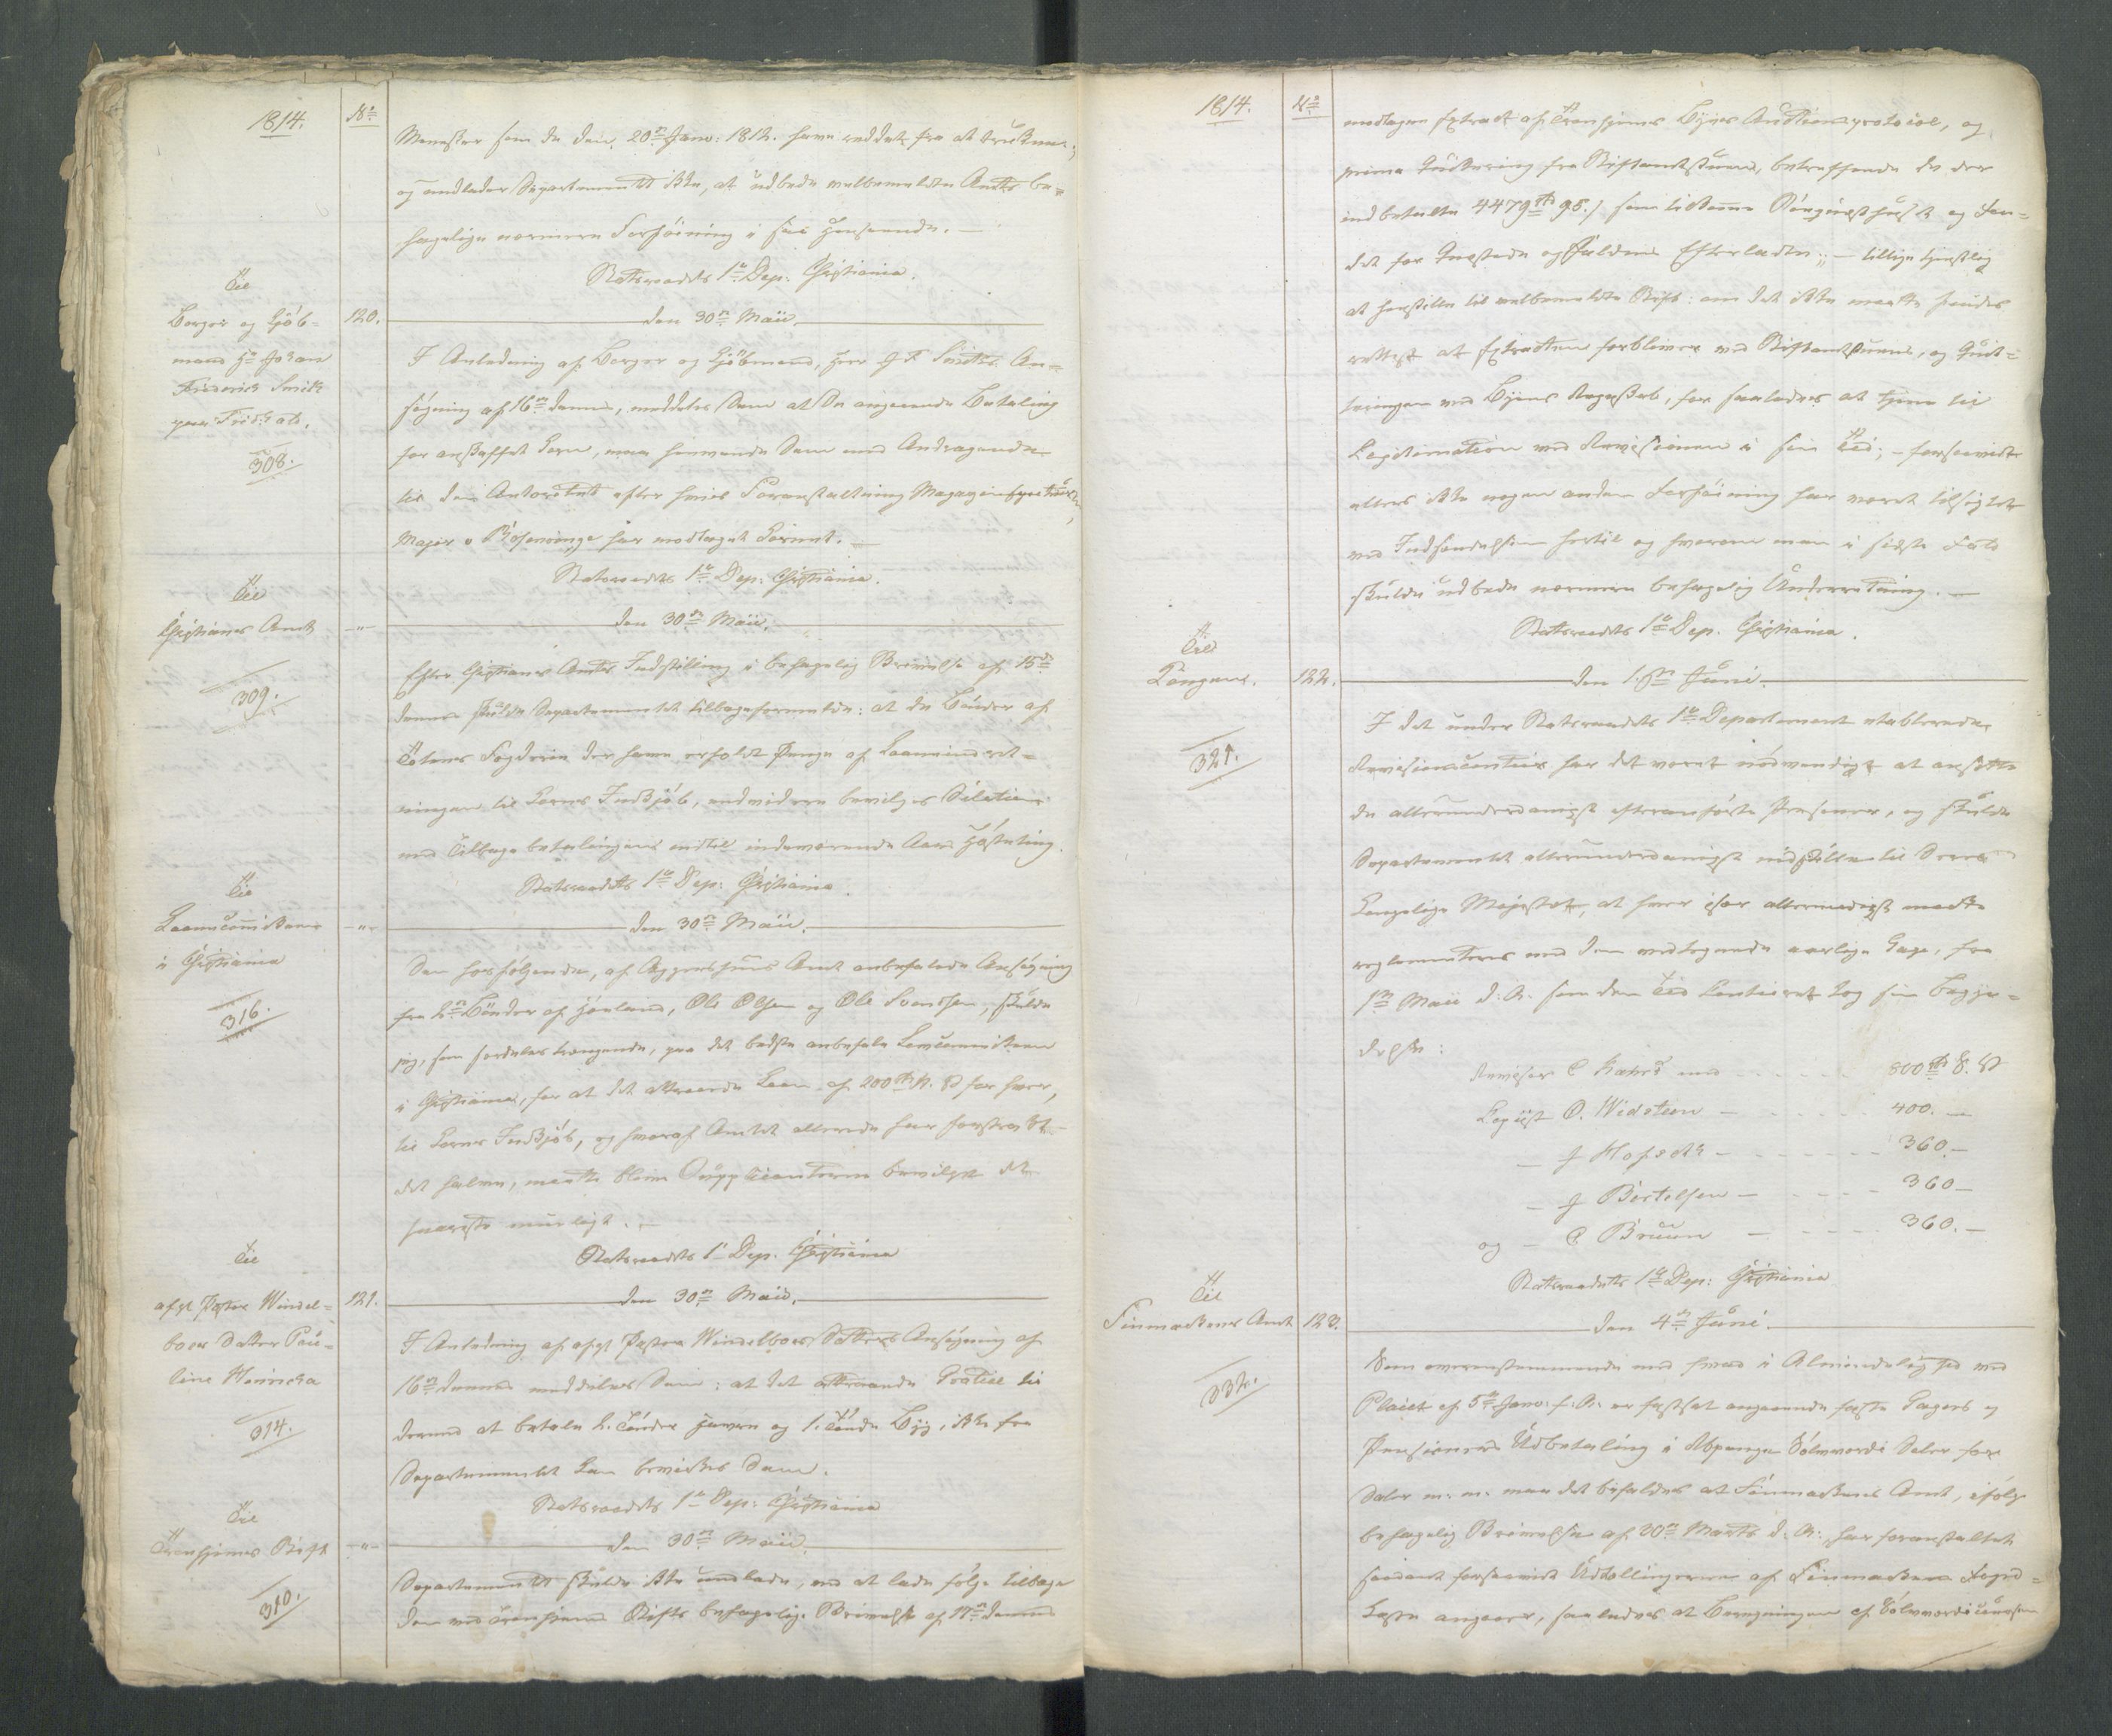 1814.
No
Mennesker som de den 20de Janv: 1812. have reddet fra at drukne;
og undlader Departementet ikke, at udbede velbemeldte Amts be-
hagelige nærmere Forføining i saa Henseende. —
Statsraadets 1te Dep: Christiania.
Til
Borger og Kjöb-
mand Hr Johan
Friderich Smith
paa Fridr.ald.
308.
120.
den 30te Maii.
I Anledning af Borger og Kjöbmand, Herr J F Smiths An-
søgning af 16de dennes, meddeles Dem at De angaaende Betaling
for anskaffet Korn, maa henvende Dem med Andragende
til den Autoritet efter hvis Foranstaltning Magazinforvalter,
Major v Rosenvinge har modtaget Kornet. —
Statsraadets 1te Dep: Christiania.
Til
Christians Amt
309.
—"—
den 30te Maii.
Efter Christians Amts Indstilling i behagelig Skrivelse af 15de
dennes skulde Departementet tilbagemelde: at de Bönder af
Totens Fogderie der have erholdt Penge af Laaneindret-
ningen til Korns Indkjöb, endvidere bevilges Dilation
med Tilbagebetalingen indtil indeværende Aars Høsteting.
Statsraadets 1te Dep: Christiania.
Til
Laanecommissionen
i Christiania
316.
—"—
den 30te Maii.
Den hosfølgende, af Aggershuus Amt anbefalede Ansøgning
fra 2de Bönder af Høeland, Ole Olsen og Ole Svendsen, skulde
jeg, som særdeles trængende, paa det bedste anbefale Laanecommissionen
i Christiania, for at det attraaede Laan af 200 Rd. for hver,
til Korns Indkjöb, og hvoraf Amtet allerede har forstrakt
det halve, maatte blive Supplicanterne bevilget det
snareste mueligt. —
Statsraadets 1te Dep. Christiania
Til
afgl Pastor Windel-
boes Datter Pau-
line Hennicha
314.
121.
den 30te Maii.
I Anledning af afgl Pastor Windelboes Datters Ansøgning af
16de dennes meddeles Dem: at det attraaede Gratiale til
dermed at betale 2. Tønder Havre og 1. Tønde Byg, ikke fra
Departementet kan bevirkes Dem.
Statsraadets 1te Dep: Christiania
Til
Tronhjems Stift
310.
—"—
den 30te Maii.
Departementet skulde ikke undlade, ved at lade følge tilbage
den med Tronhjems Stifts behagelige Skrivelse af 17de dennes
1814.
No
modtagne Extract af Tronhjems Byes Auctionsprotocol, og
prima Qvittering fra Stiftamtstuen, betreffende de der
indbetalte 4479 Rd 95 s som
det for Enestede og Juldens Efterladte; — tillige tjenstlig
at henstille til velbemeldte Stift: om det ikke maatte findes
rettest at Extracten forbliver ved Stiftamtstuen, og Qvit-
teringen ved Byens Regnskab, for saaledes at tjene til
Legitimation ved Revisionen i sin Tid; — forsaavidt
ellers ikke nogen anden Forføining har været tilsigtet
ved Indsendelsen hertil og hvorom man i sidste Fald
skulde udbede nærmere behagelig Underretning. —
Statsraadets 1te Dep. Christiania.
Til
Kongen.
321.
122.
den 1ste Juni.
I det under Statsraadets 1te Departement etablerede
Revisionscontoir har det været nødvendigt at ansætte
de allerunderdanigst efteranførte Personer, og skulde
Departementet allerunderdanigst indstille til Deres
Kongelige Majestæt, at hver især allernaadigst maatte
reglementeres med den vedtegnede aarlige Gage, fra
1ste Maii d: A. som den Tid Contoiret tog sin Begyn-
delse:
Revisor C med - - - - - 800 Rd S. V
Copiist O. Widsteen — - - - - 400. —
— J Hofsdh - - - - - - 360. —
— J Bertelsen — - - - - 360 —
og — C Bruun — - - - - 360. —
Statsraadets 1te Dep: Christiania
Til
Finmarkens Amt
332.
123.
den 4de Juni.
Som overensstemmende med hvad i Almindelighed ved
Placat af 5te Janv. f. A. er fastsat angaaende faste Gagers og
Pensioners Udbetaling i Rbpenge Sølvværdi Daler for
Daler m: m: maa det bifaldes at Finmarkens Amt, ifølge
behagelig Skrivelse af 30te Marts d. A: har foranstaltet
saadant forsaavidt Udtællingerne af Finmarkens Fogd-
Kasse angaaer, saaledes at Beregningen af Sølvværdicoursen